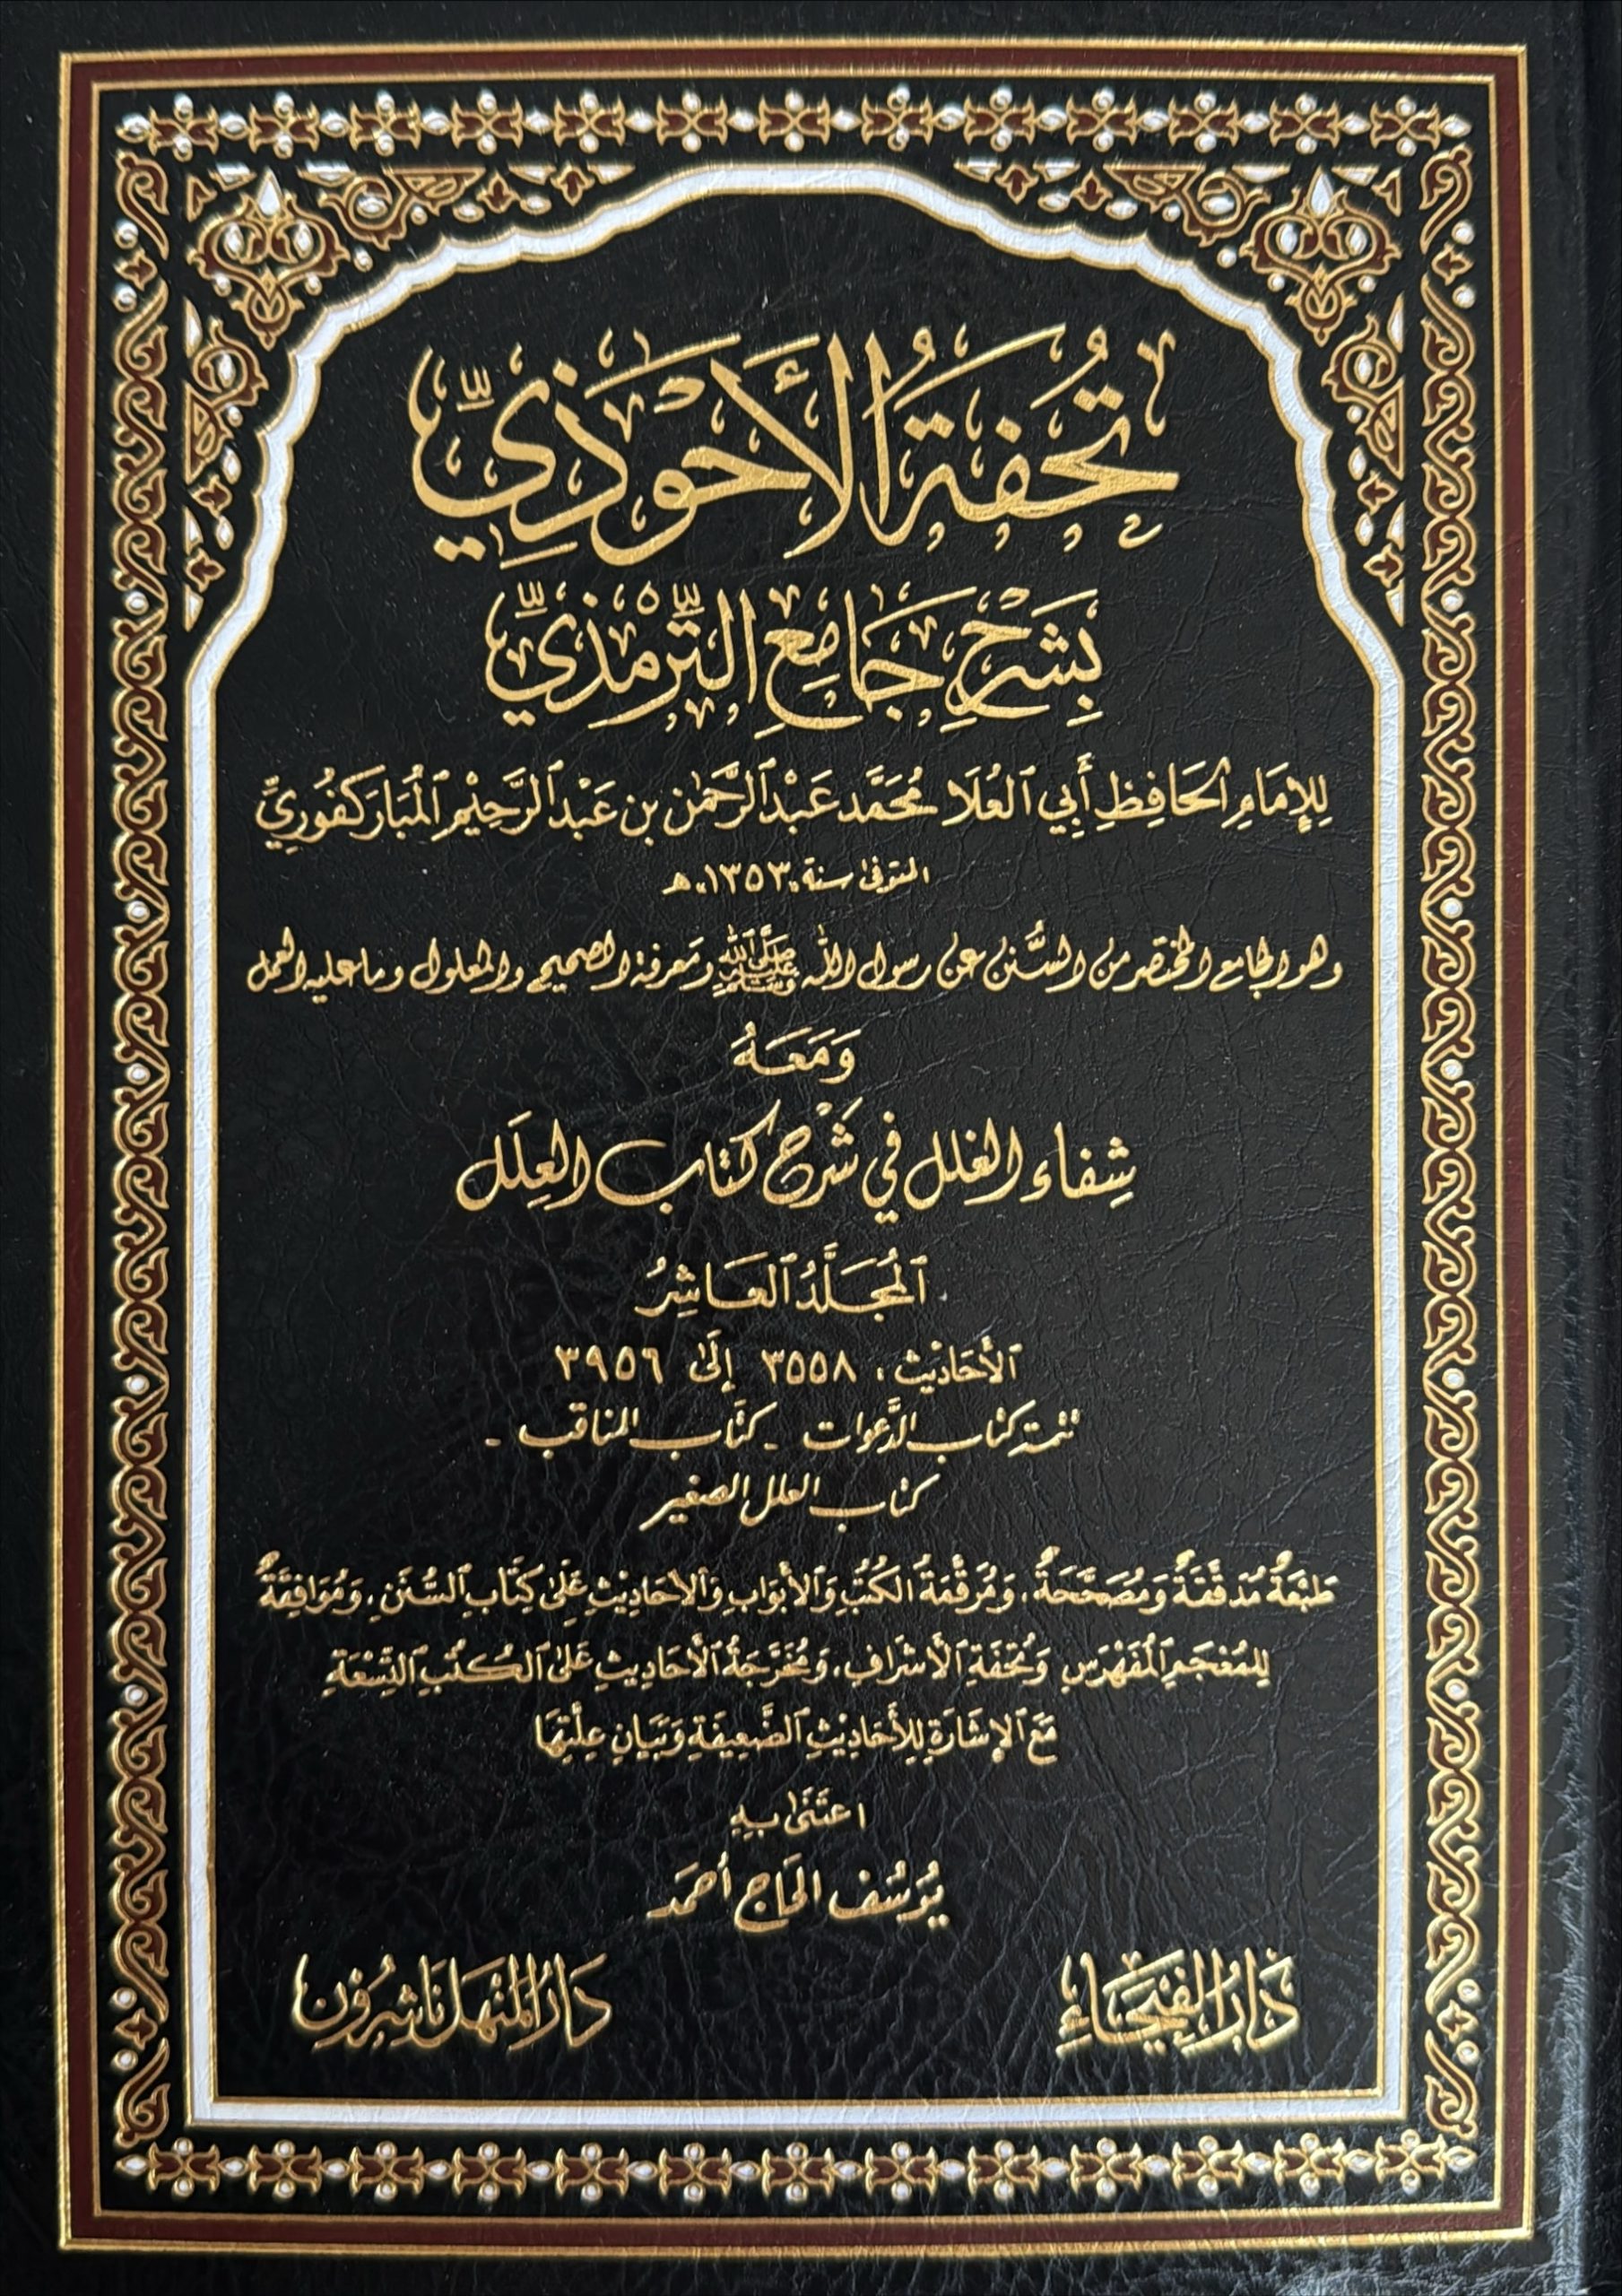 تُحْفَةُ الأَحْوَذِيِّ
بِشَرْحِ جَامِعِ التِّرْمِذِيِّ
لِلإِمَامِ الحَافِظِ أَبِي العُلَا مُحَمَّد عَبْد الرَّحْمٰن بن عَبْد الرَّحِيْم المُبَارَكفُورِيِّ
المتوفىٰ سنة ١٣٥٣ هـ
وهو الجامع المختصر من السُّنن عن رسول اللّٰه ﷺ ومعرفة الصحيح والمعلول وما عليه العمل
وَمَعَهُ
شِفاء الغلل في شَرْح كتاب العِلَل
المُجَلَّدُ العَاشِرُ
الأَحَادِيْث: ٣٥٥٨ إِلَىٰ ٣٩٥٦
تتمة كتاب الدَّعوات - كتَاب المناقب -
كتاب العلل الصغير
طَبْعَةٌ مُدَقَّقَةٌ وَمُصَحَّحَةٌ، وَمُرَقَّمَةُ الكُتُبِ وَالأَبْوَابِ وَالأَحَادِيْثِ عَلَىٰ كِتَابِ السُّنَنِ، وَمُوَافِقَةٌ
لِلمُعْجَمِ المُفَهْرَسِ وَتُحْفَةِ الأَشْرَافِ، وَمُخَرَّجَةُ الأَحَادِيثِ عَلَىٰ الكُتُبِ التِّسْعَةِ
مَعَ الإِشَارَةِ لِلأَحَادِيْثِ الضَّعِيفَةِ وَبَيَانِ عِلَّتِهَا
اعتَنىٰ بِهِ
يُوسُف الحَاج أحمَد
دَارُ الفَيْحَاءِ
دَارُ المَنْهَل نَاشِرُون